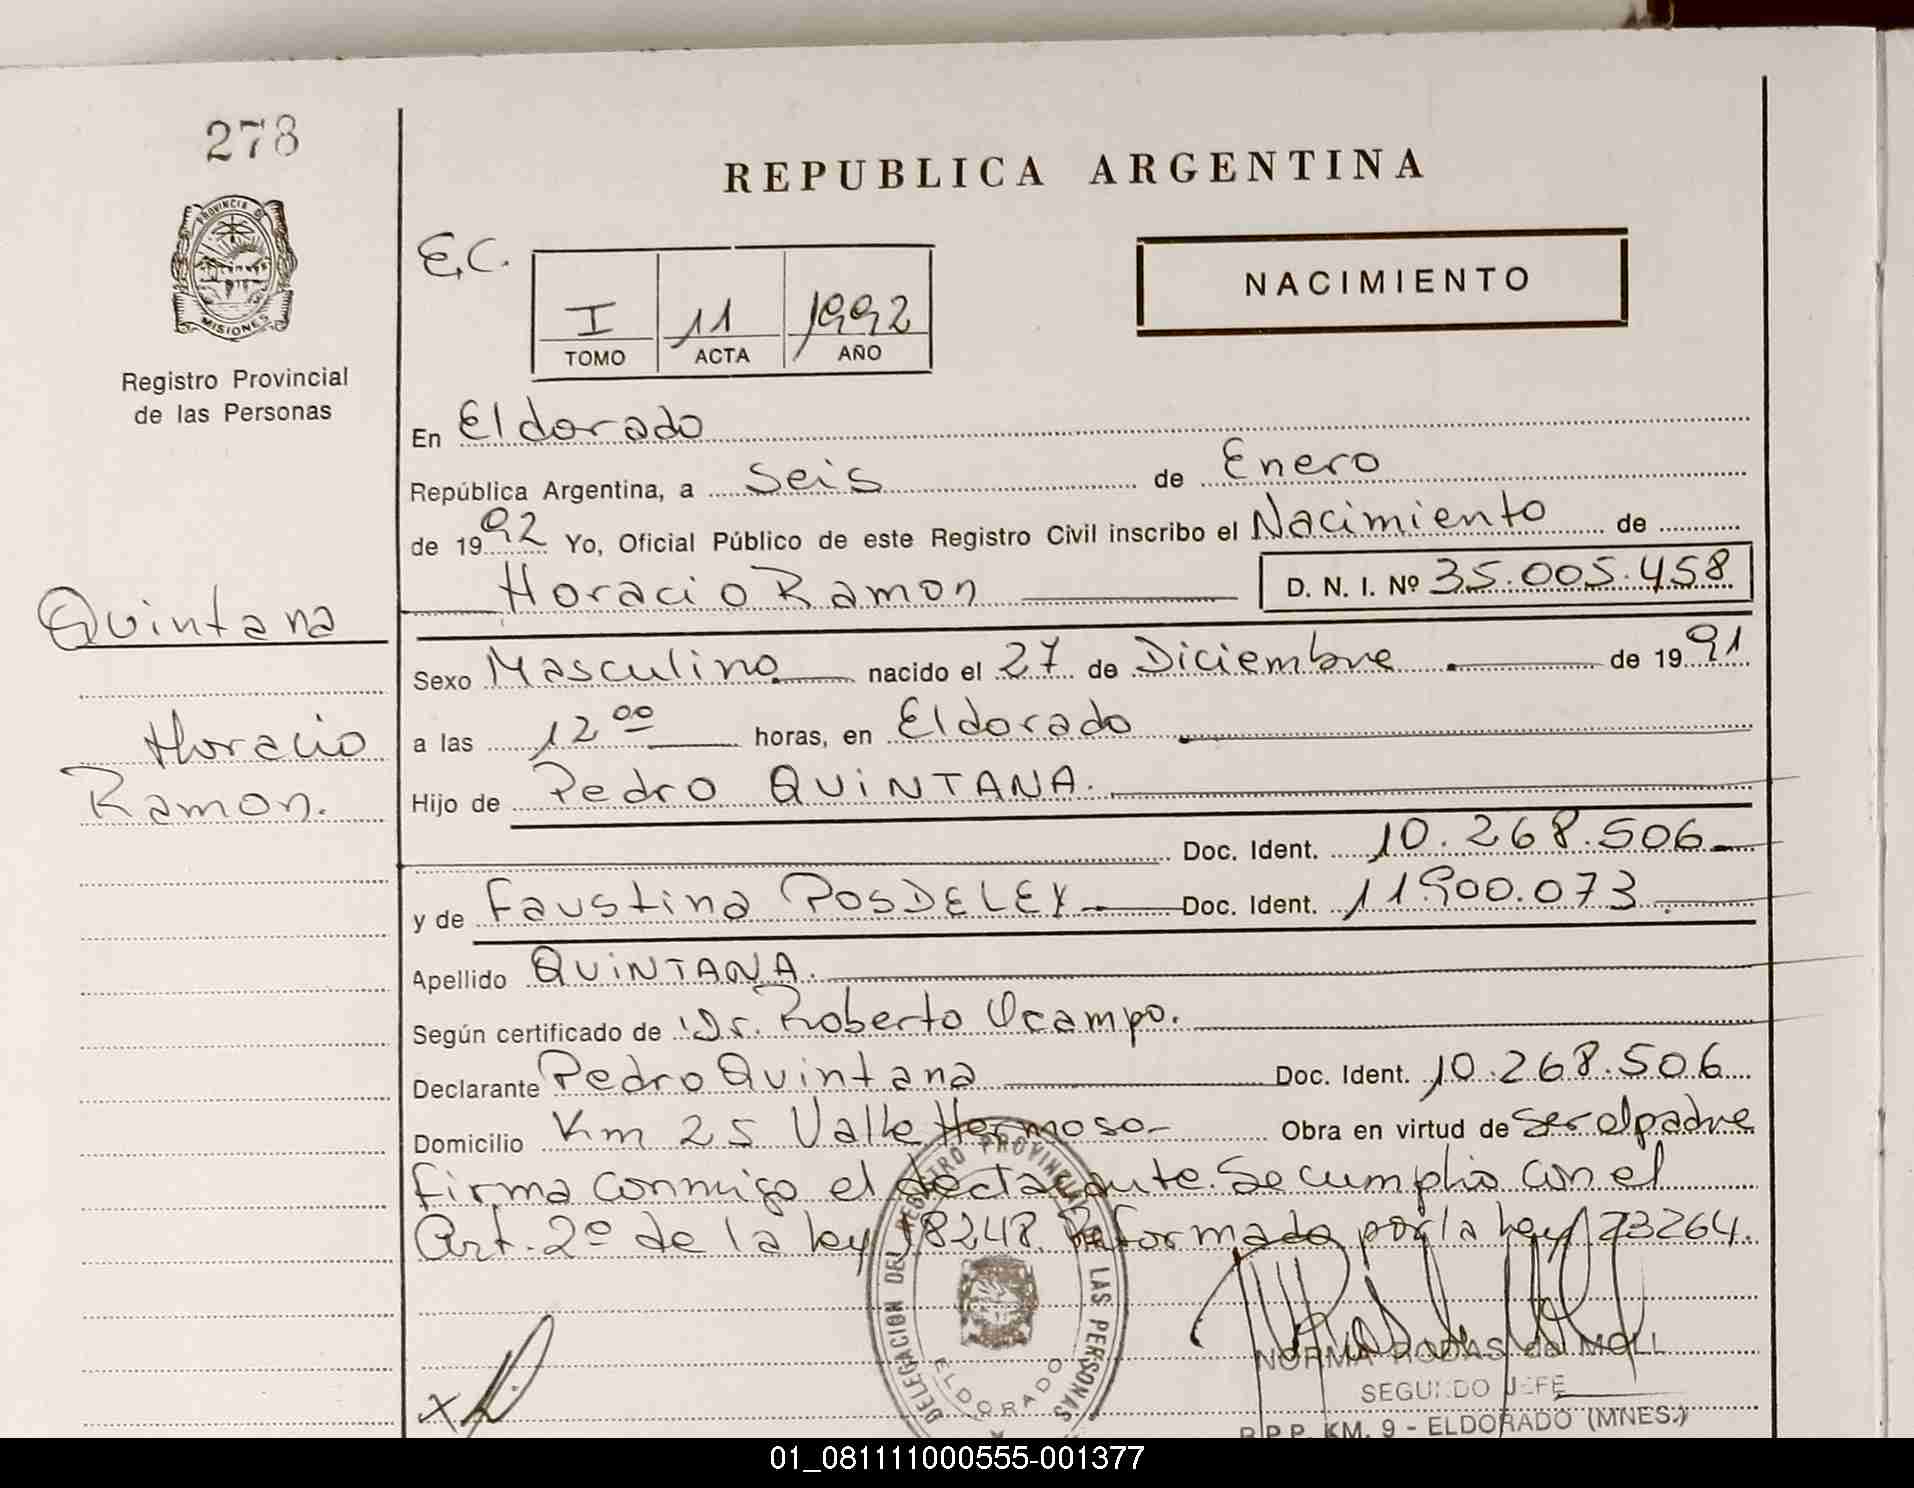 278
REPUBLICA ARGENTINA
PROVINCIA D
MISIONES
Registro Provincial
de las Personas
E.C.
I 11 1992
TOMO ACTA AÑO
NACIMIENTO
En Eldorado
República Argentina, a Seis de Enero
de 1992 Yo, Oficial Público de este Registro Civil inscribo el Nacimiento de
Horacio Ramon D. N. I. Nº 35.005.458
Quintana
Horacio
Ramon.
Sexo Masculino nacido el 27 de Diciembre de 1991
a las 12 00 horas, en Eldorado
Hijo de Pedro QUINTANA.
Doc. Ident. 10.268.506
y de Faustina POSDELEY Doc. Ident. 11900.073
Apellido QUINTANA.
Según certificado de Dr. Roberto Ocampo.
Declarante Pedro Quintana Doc. Ident. 10.268.506
Domicilio Km 25 Valle Hermoso Obra en virtud de ser el padre
firma conmigo el declarante. Se cumplio con el
Art. 2º de la ley 18248 Reformada por la ley 23264.
DELEGACION DEL REGISTRO PROVINCIAL DE LAS PERSONAS
ELDORADO
NORMA RODAS de MOLL
SEGUNDO JEFE
R.P.P. KM. 9 - ELDORADO (MNES.)
01_081111000555-001377